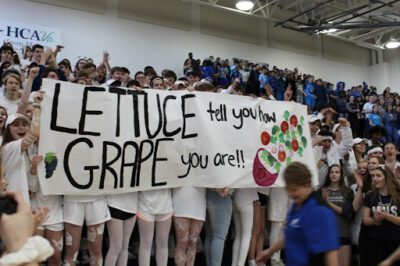 HCAVa
LETTUCE tell you how
GRAPE you are!!